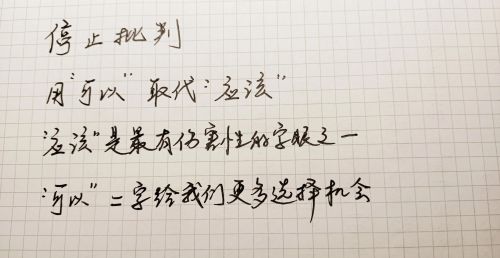 停止批判
用"可以"取代"应该"
"应该"是最有伤害性的字眼之一
"可以"二字给我们更多选择机会